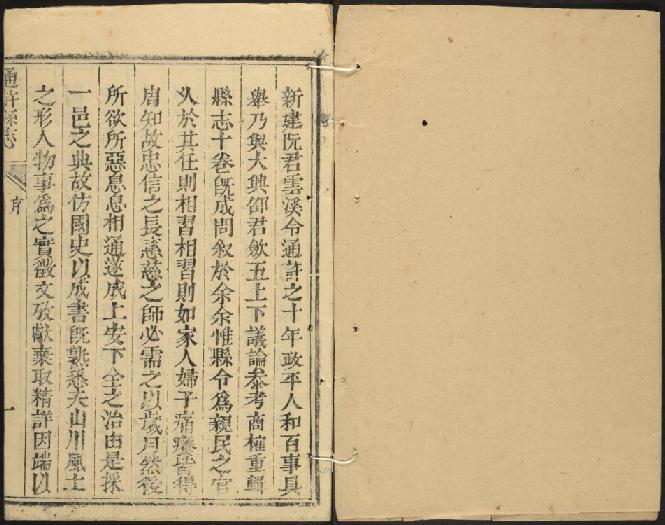 新建阮君雲溪令通許之十年政平人和百事具
舉乃與大興邵君歛五上下議論參考商榷重輯
縣志十卷旣成問敘於余余惟縣令爲親民之官
久於其任則相習相習則如家人婦子痛癢皆得
周知故忠信之長慈惠之師必需之以歲月然後
所欲所惡息息相通遂成上安下全之治由是採
一邑之典故仿國史以成書旣孰悉夫山川風土
之形人物事爲之實徵文攷獻棄取精詳因端以
通許縣志
序
一